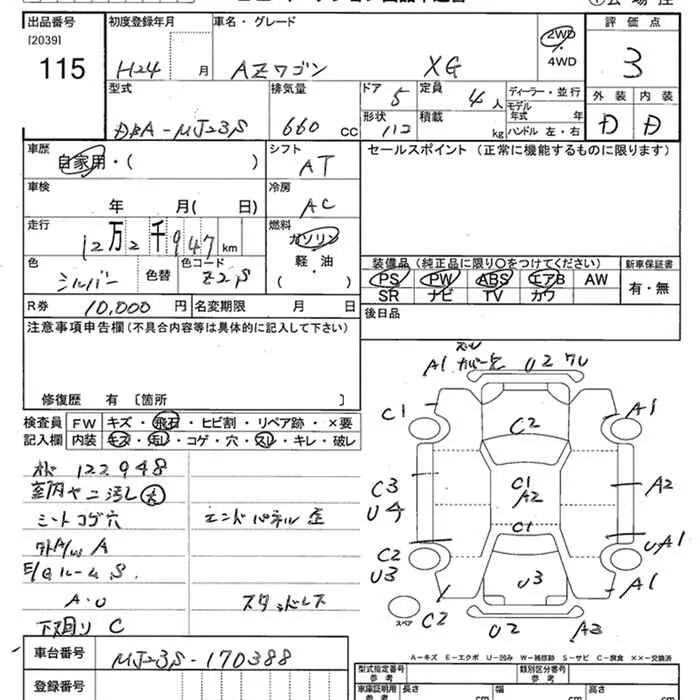 出品番号 初度登録年月 車名・グレード 評価点
[2039]
115 H24 月 AZワゴン XG 2WD・4WD 3
型式 排気量 ドア 5 定員 4人 ディーラー・並行 外装 内装
モデル年式 年
DBA-MJ23S 660 cc 形状 積載 kg ハンドル 左・右 D D
車歴 シフト セールスポイント (正常に機能するものに限ります)
自家用・( ) AT
車検 冷房
年 月( 日) AC
走行 燃料
12万2千947km ガソリン
色 色替 色コード 軽・油 装備品(純正品に限り○をつけてください) 新車保証書
シルバー Z2S ( ) PS PW ABS エアB AW 有・無
SR ナビ TV カワ
R券 10,000円 名変期限 月 日 後日品
注意事項申告欄(不具合内容等は具体的に記入して下さい)
修復歴 有 [箇所
検査員記入欄 FW キズ・飛石・ヒビ割・リペア跡・×要
内装 キズ・汚レ・コゲ・穴・スレ・キレ・破レ
122948
室内ヤニ汚レ大
シートコゲ穴 エンドパネル歪
外A/W A
E/Gルーム S
A.O スタッドレス
下回り C
車台番号 MJ23S-170388
登録番号
A1 U2 ワレ
C1 C2 A1
C3 C1 A2
U4 A2
C1 A1
C2
U3 U3 A1
スペア C2 U2 A3
A-キズ E-エクボ U-凹み W-補修跡 S-サビ C-腐食 ××-交換済
型式指定番号 参考 類別区分番号 参考
車庫証明用 参考 長さ cm 幅 cm 高さ cm